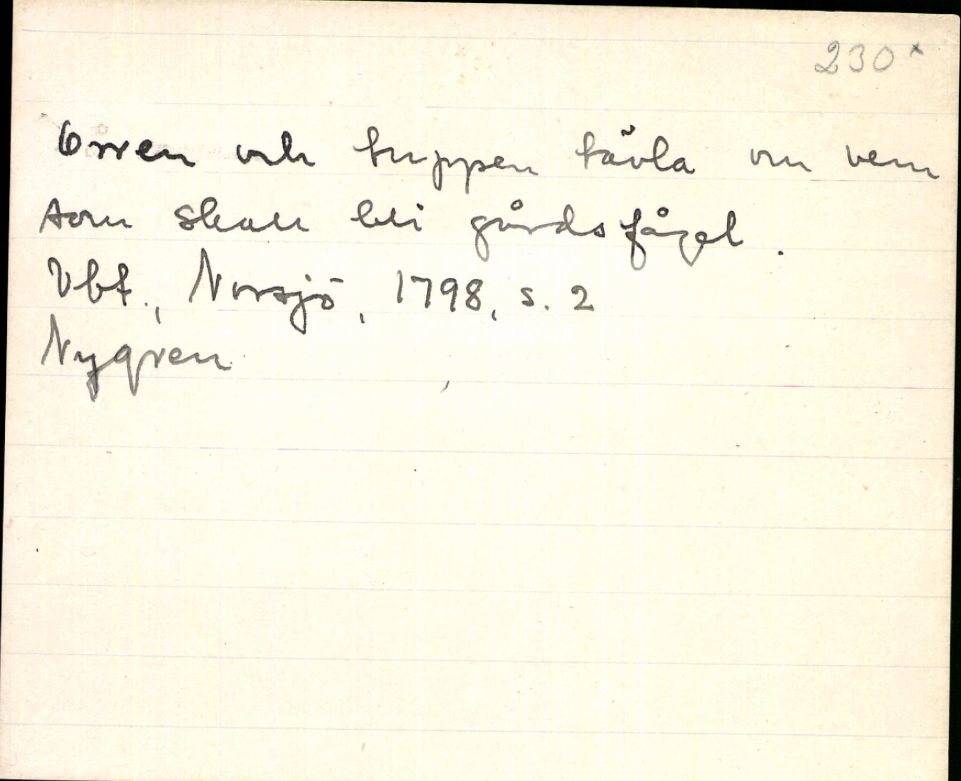 230*
Orren och tuppen tävla om vem
som skall bli gårdsfågel.
Vbt., Norsjö, 1798, s. 2
Nygren